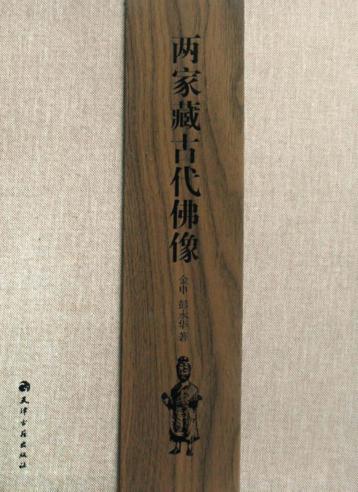 两家藏古代佛像
金申 彭永华 著
天津古籍出版社